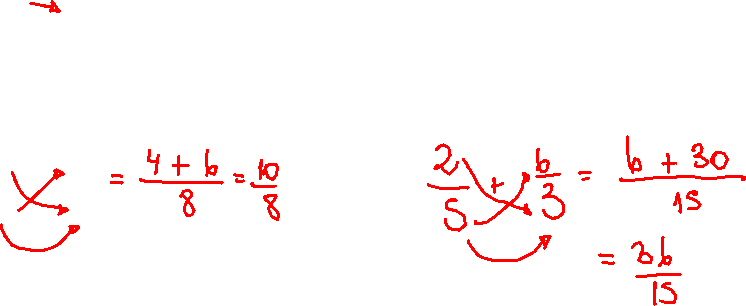 = 4 + 6 / 8 = 10 / 8
2 / 5 + 6 / 3 = 6 + 30 / 15
= 36 / 15